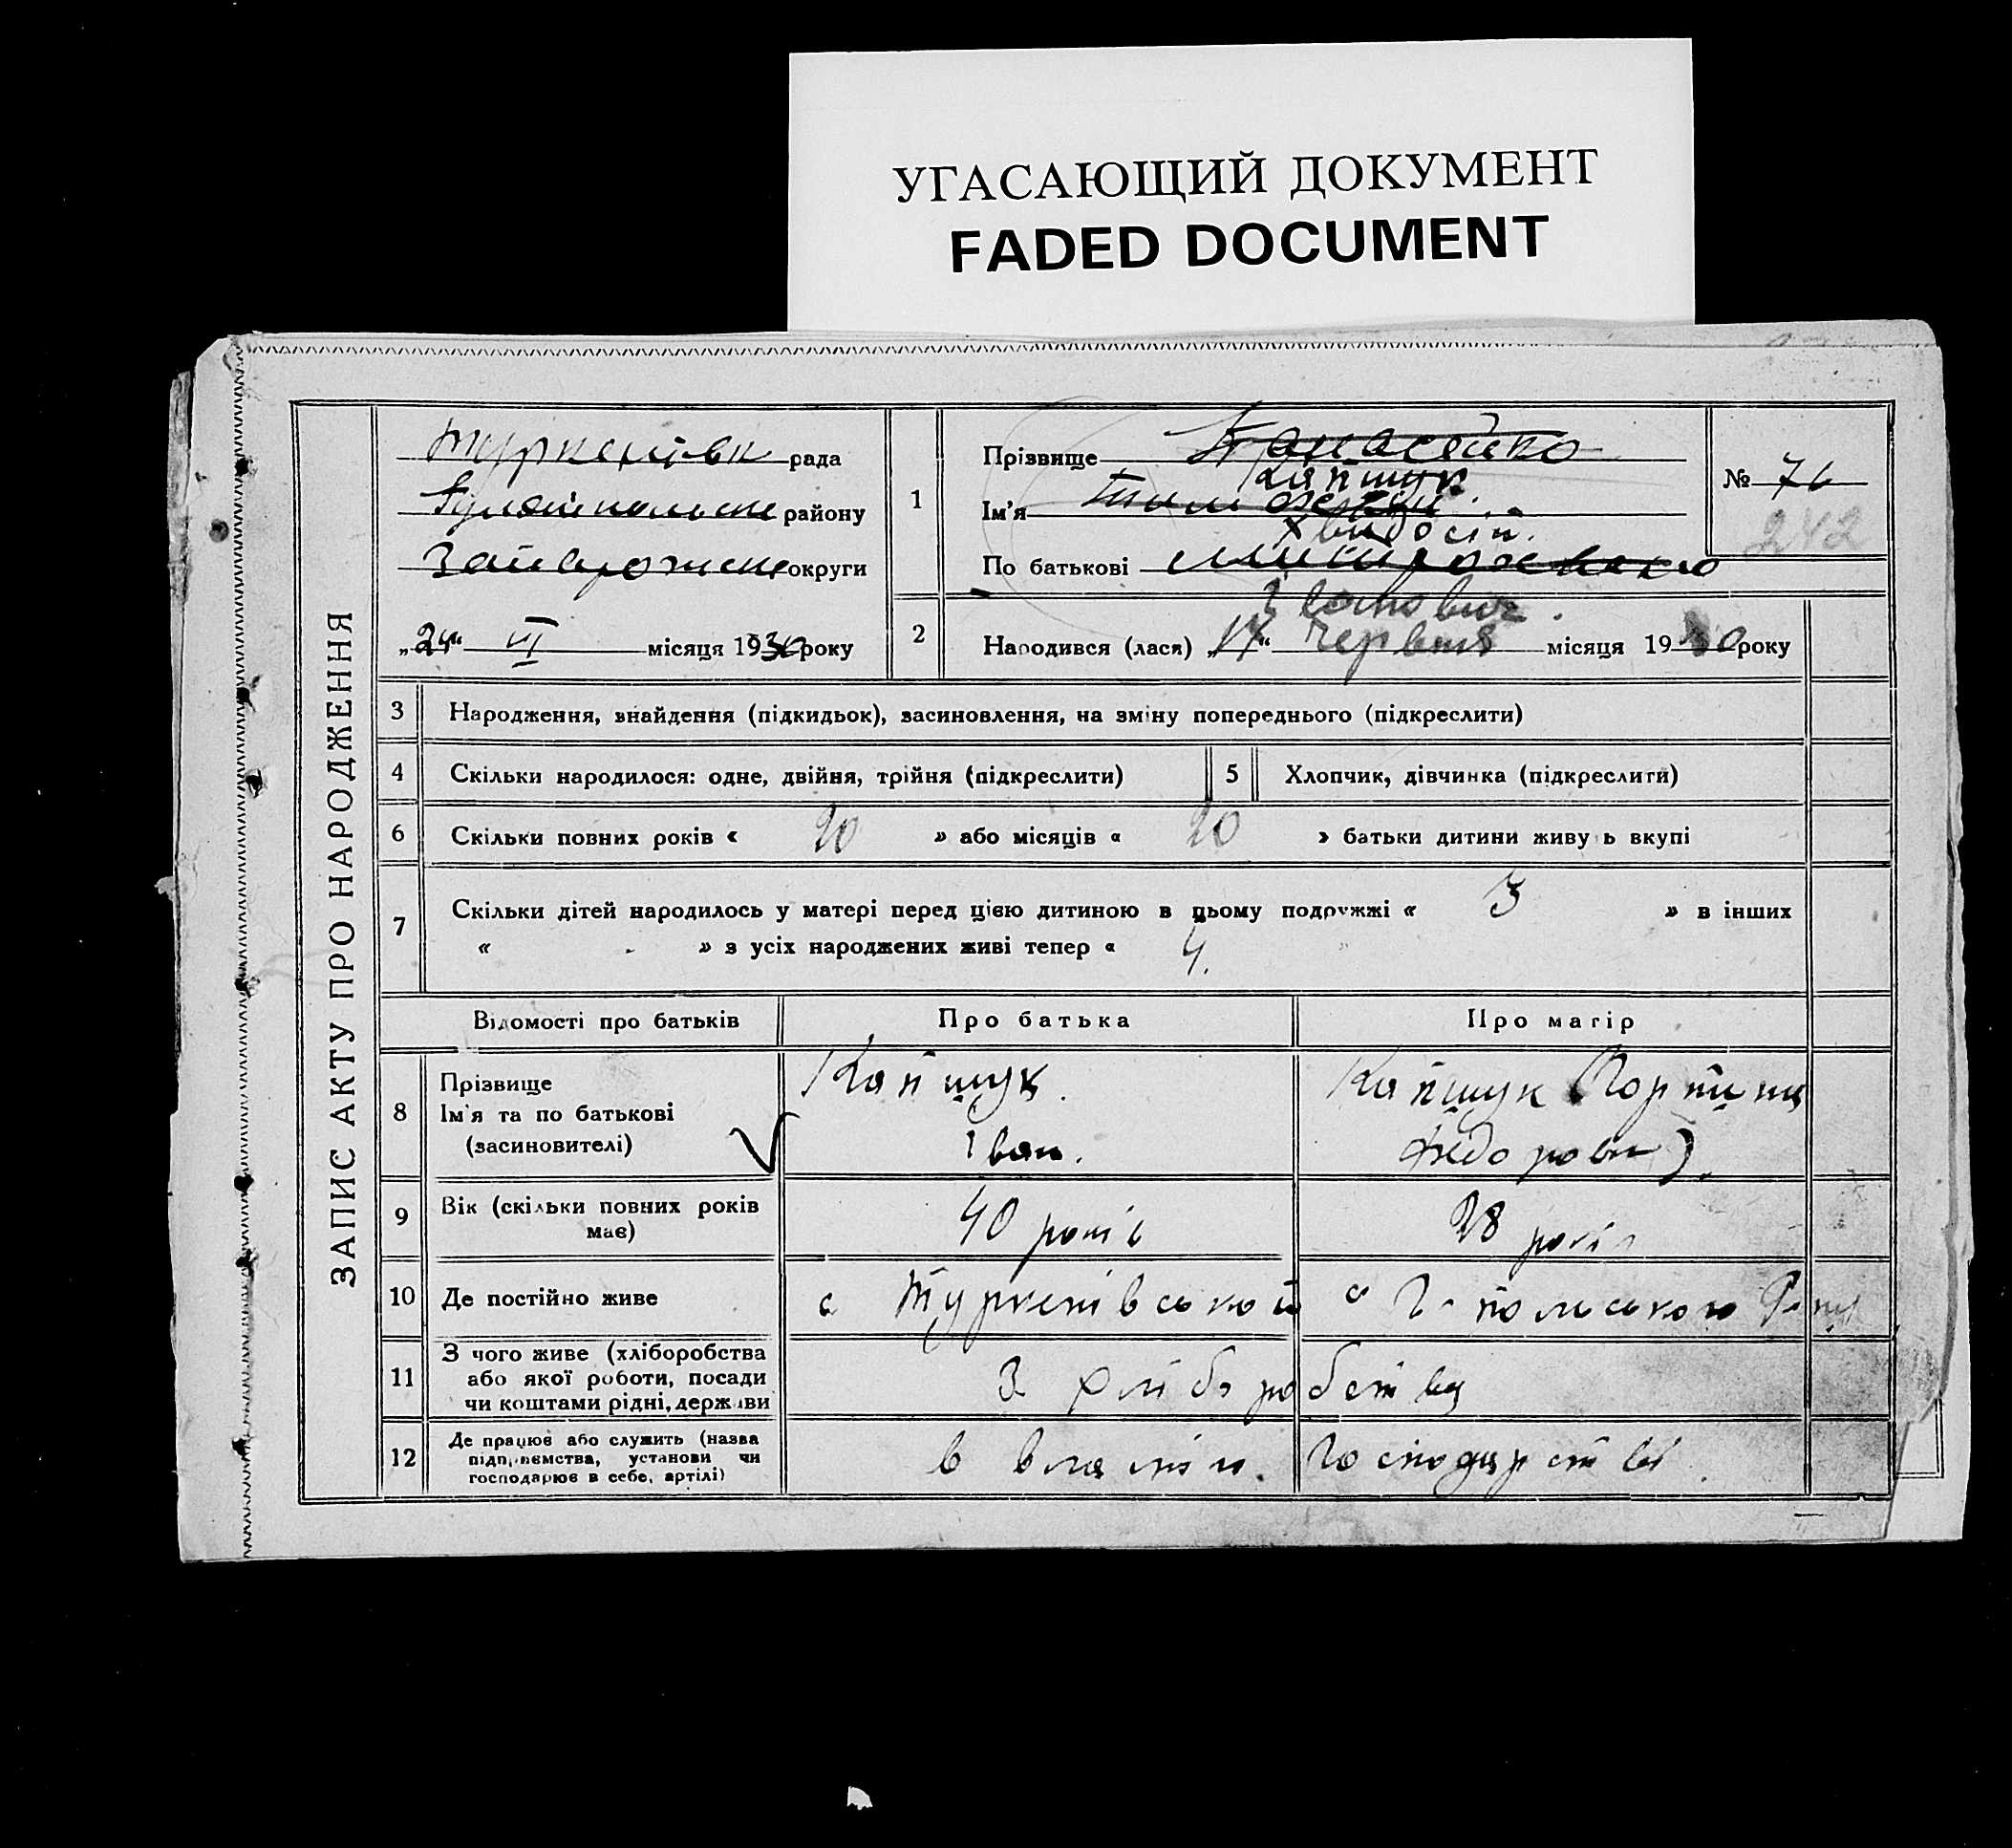 УГАСАЮЩИЙ ДОКУМЕНТ
FADED DOCUMENT
ЗАПИС АКТУ ПРО НАРОДЖЕННЯ
Туркенівк рада
Гуляйпольськ району
Запорожськ округи
„24“ VI місяця 1930 року
1
Прізвище Панасенко
Капшук
Ім'я Тимофей
Хвидосій.
По батькові
Іванович.
№ 76
242
2
Народився (лася) „17“ Червня місяця 1930 року
3 Народження, знайдення (підкидьок), засиновлення, на зміну попереднього (підкреслити)
4 Скільки народилося: одне, двійня, трійня (підкреслити) 5 Хлопчик, дівчинка (підкреслити)
6 Скільки повних років « 20 » або місяців « 20 » батьки дитини живуть вкупі
7 Скільки дітей народилось у матері перед цією дитиною в цьому подружжі « 3 » в інших
« - » з усіх народжених живі тепер « 4.
Відомості про батьків Про батька Про матір
8 Прізвище
Ім'я та по батькові
(засиновителі)
Капшук.
Іван.
Капшук Горпина
Федоровн
9 Вік (скільки повних років
має)
40 років 28 років
10 Де постійно живе
с Туркенівської Г-польського
11 З чого живе (хліборобства
або якої роботи, посади
чи коштами рідні, держави
З хліборобства
12 Де працює або служить (назва
підприємства, установи чи
господарює в себе, артілі)
в власнім господарстві.